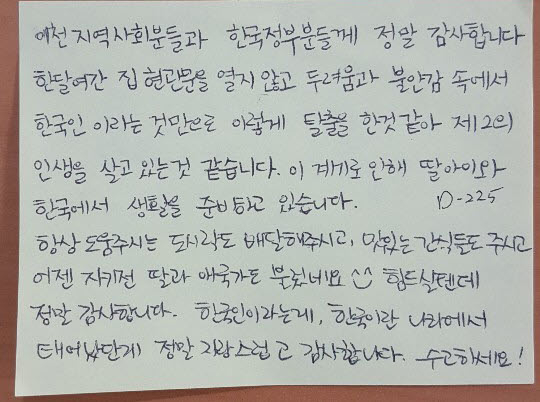 이천 지역사회분들과 한국정부분들께 정말 감사합니다
한달여간 집 현관문을 열지 않고 두려움과 불안감 속에서
한국인 이라는 것만으로 이렇게 탈출을 한것 같아 제2의
인생을 살고 있는것 같습니다. 이 계기로 인해 딸아이와
한국에서 생활을 준비하고 있습니다. D-225
항상 도움주시는 도시락도 배달해주시고, 맛있는 간식들도 주시고
어젠 자기전 딸과 애국가도 불렀네요 힘드실텐데
정말 감사합니다. 한국인이라는게, 한국이란 나라에서
태어났단게 정말 자랑스럽고 감사합니다. 수고하세요!